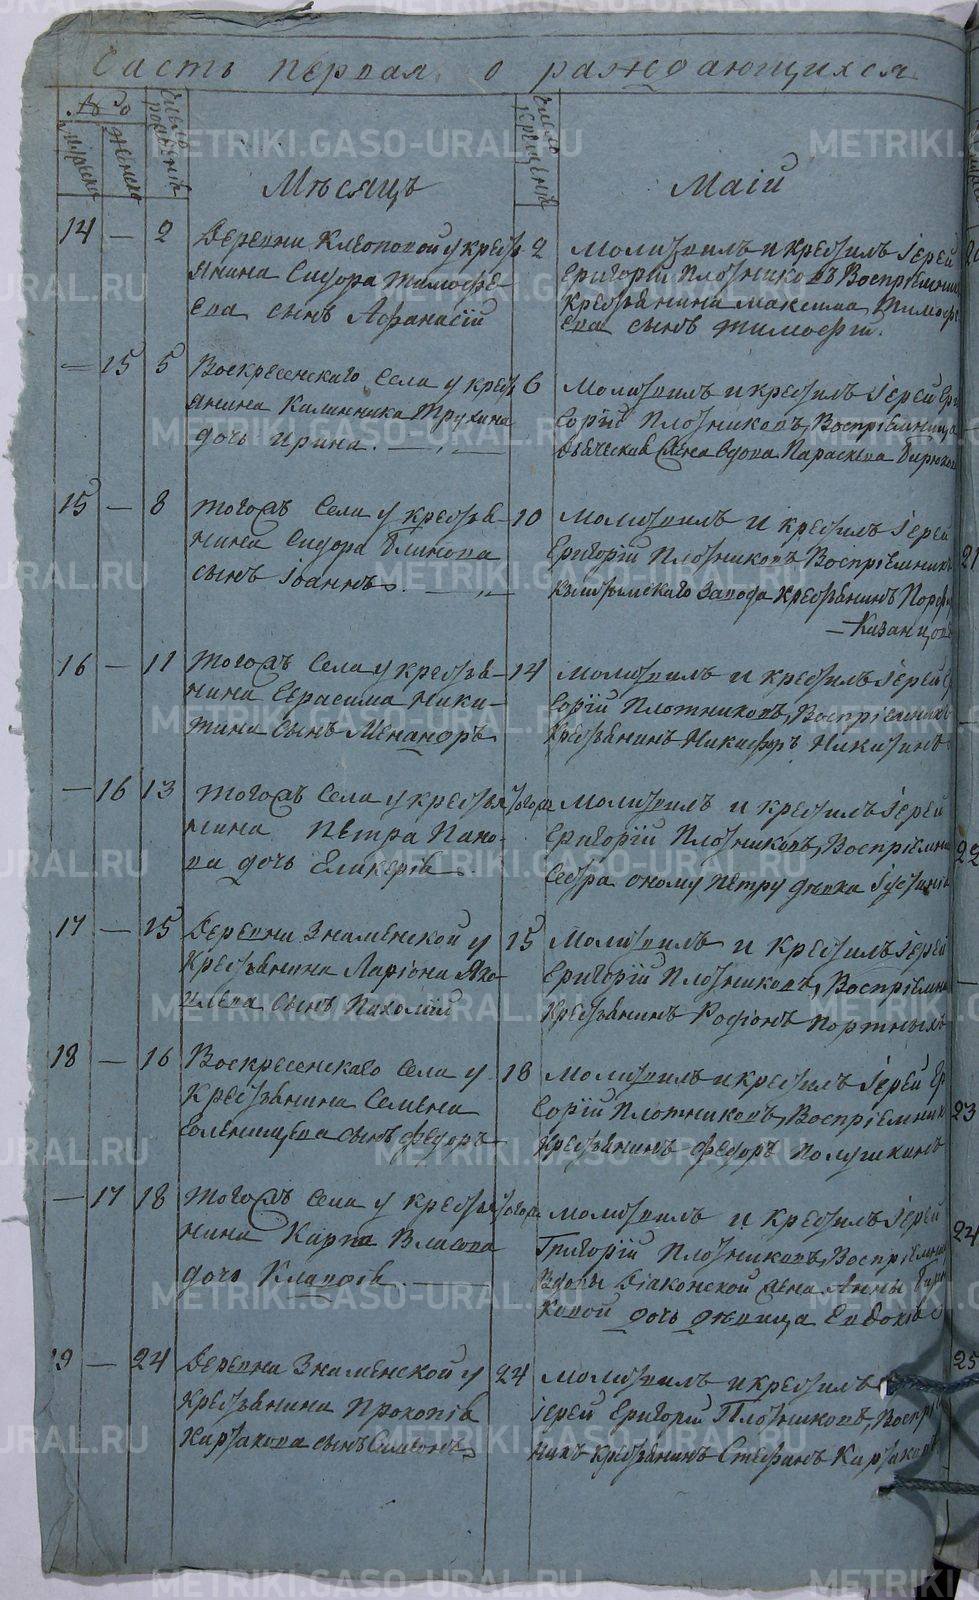 Часть первая о раждающихся
№ го
мужеска
женска
Число рожденій
Число крещеній
Мѣсяцъ Маій
14 — 2 Деревни Клеоповой у крестья
нина Сидора Тимофе-
ева сынъ Афанасій
2 Молитвилъ и крестилъ Іерей
Григорій Плотниковъ Воспріемник
крестьянина Максима Тимофе
ева сынъ Тимофей.
— 15 5 Воскресенскаго Села у крестья
янина Калинника Трухина
дочь Ирина.
6 Молитвилъ и крестилъ Іерей Гри
горій Плотниковъ, Воспріемница
Дьяческая жена вдова Параскева Бирюков
15 — 8 Тогожъ Села у крестья-
нина Сидора Блинова
сынъ Іоаннъ.
10 Молитвилъ и крестилъ Іерей
Григорій Плотниковъ Воспріемникъ
Кыштымскаго Завода Крестьянинъ Порфи
— Казанцовъ
16 — 11 Тогожъ Села у крестья-
нина Герасима Ники-
тина сынъ Менандръ
14 Молитвилъ и крестилъ Іерей Гри
горій Плотниковъ, Воспріемникъ
Крестьянинъ Никифоръ Никитинъ
— 16 13 Тогожъ Села у крестья
нина Петра Пано-
ва дочь Гликерія
тогож Молитвилъ и крестилъ Іерей
Григорій Плотниковъ, Воспріемни
Сестра оному Петру девка Іустинія
17 — 15 Деревни Знаменской у
Крестьянина Ларіона Яко-
влева сынъ Пахомій
15 Молитвилъ и крестилъ Іерей
Григорій Плотниковъ, Воспріемни
Крестьянинъ Родіонъ Портныхъ
18 — 16 Воскресенскаго Села у
Крестьянина Семена
Голенищева сынъ Федоръ
18 Молитвилъ и крестилъ Іерей Гри
горій Плотниковъ, Воспріемник
Крестьянинъ Федоръ Полушкинъ
— 17 18 Тогожъ Села у крестья
нина Карпа Власова
дочь Клавдія
тогож Молитвилъ и крестилъ Іерей
Григорій Плотниковъ, Воспріемниц
Вдовы Діаконской жены Анны Бирю
ковой дочь девица Евдокія
19 — 24 Деревни Знаменской у
Крестьянина Прокопія
Карзакова сынъ Симеонъ
24 Молитвилъ и крестилъ
Іерей Григорій Плотниковъ, Воспріем
никъ крестьянинъ Стефанъ Карзаковъ
21
22
23
24
25
METRIKI.GASO-URAL.RU